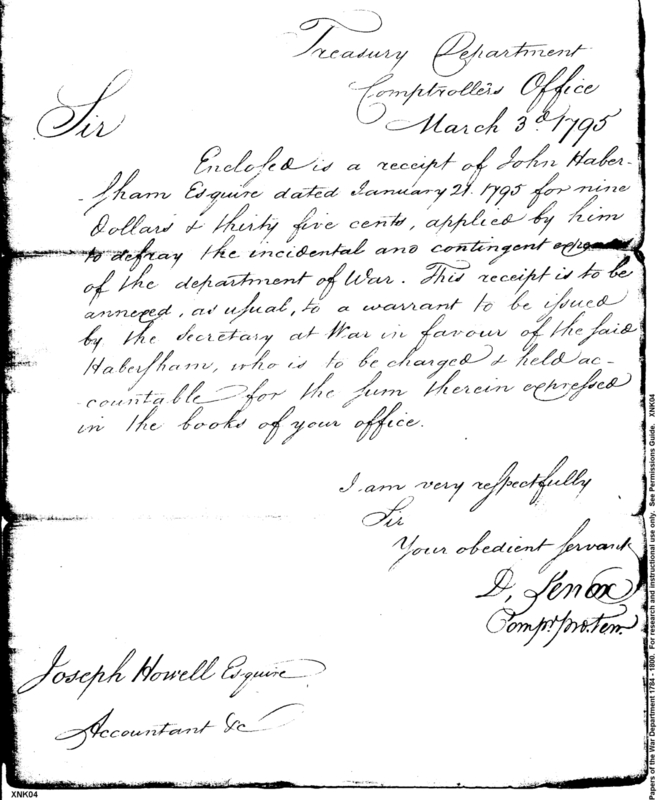 Treasury Department
Comptrollers Office
March 3d. 1795
Sir
Enclosed is a receipt of John Haber-
-sham Esquire dated January 21. 1795 for nine
Dollars & thirty five cents, applied by him
to defray the incidental and contingent expenses
of the department of War. This receipt is to be
annexed, as usual, to a warrant to be issued
by the secretary at War in favour of the said
Habersham, who is to be charged & held ac-
-countable for the sum therein expressed
in the books of your office.
I am very respectfully
Sir
Your obedient servant
D, Lenox
Compr. pro. tem.
Joseph Howell Esquire
Accountant &c
XNK04
Papers of the War Department 1784 - 1800. For research and instructional use only. See Permissions Guide. XNK04